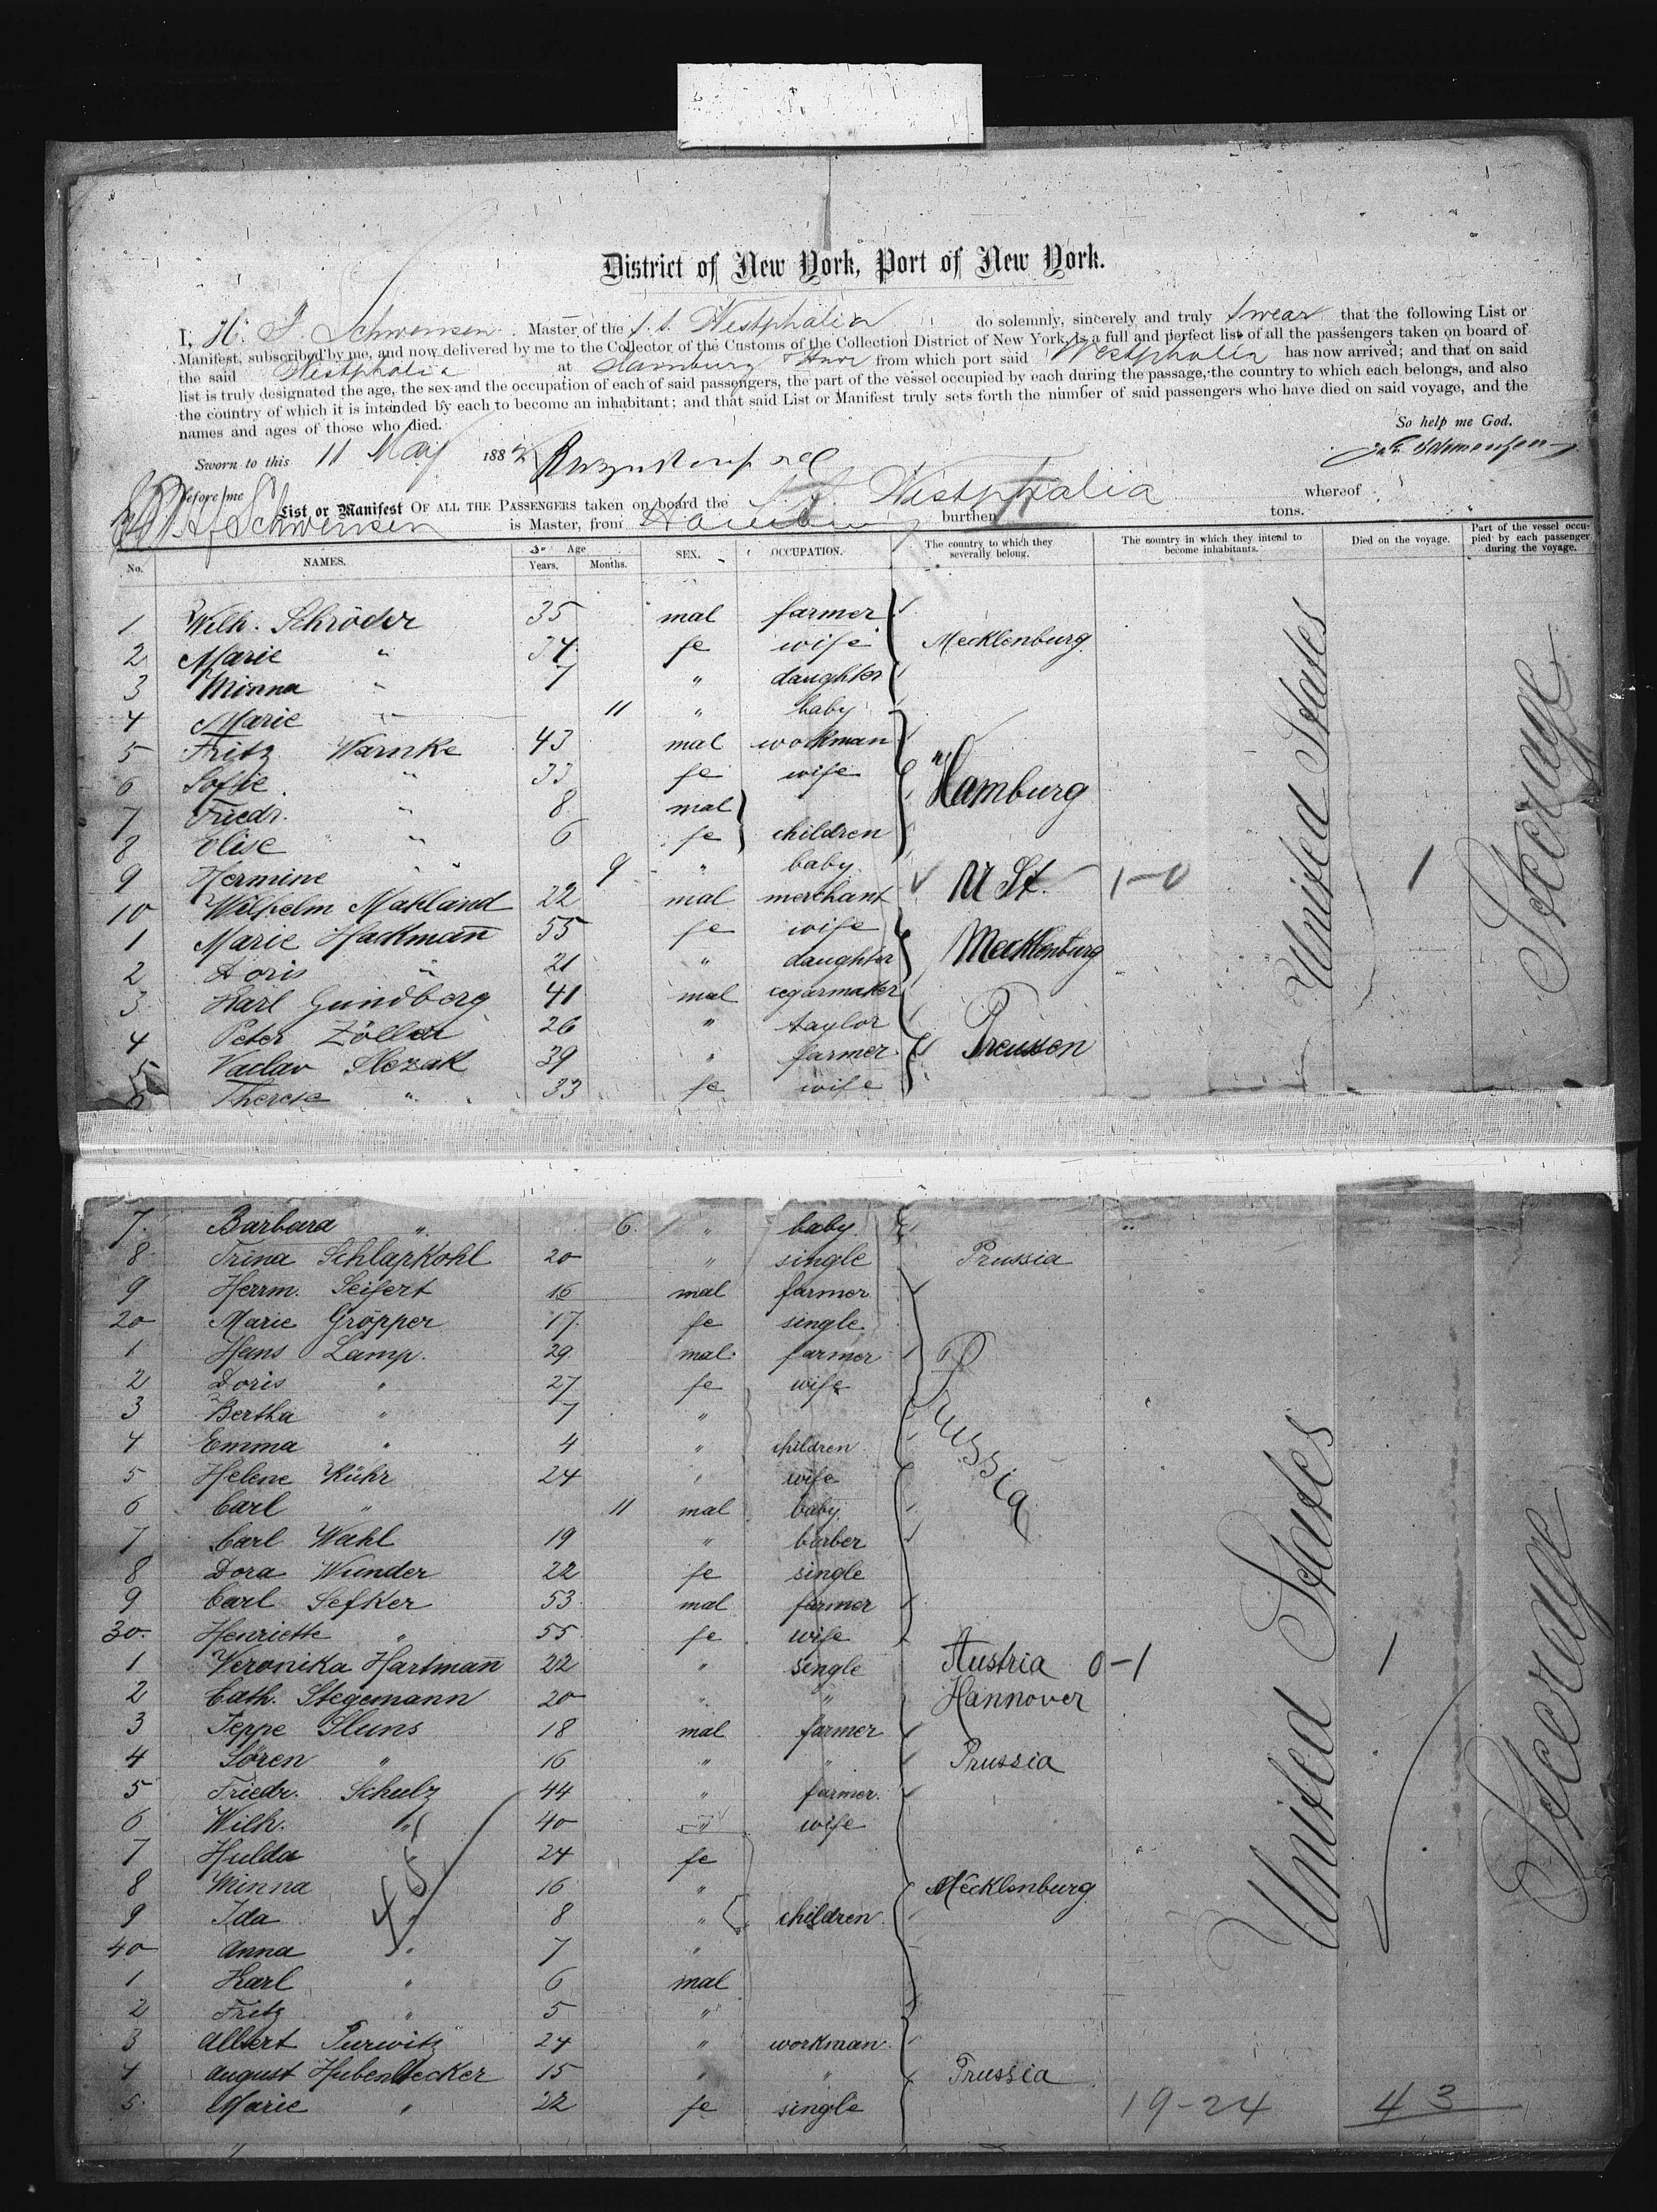 District of New York, Port of New York.
I, H. F. Schwensen Master of the s. s. Westphalia do solemnly, sincerely and truly swear that the following List or
Manifest, subscribed by me, and now delivered by me to the Collector of the Customs of the Collection District of New York, is a full and perfect list of all the passengers taken on board of
the said Westphalia at Hamburg & Havr from which port said Westphalia has now arrived; and that on said
list is truly designated the age, the sex and the occupation of each of said passengers, the part of the vessel occupied by each during the passage, the country to which each belongs, and also
the country of which it is intended by each to become an inhabitant; and that said List or Manifest truly sets forth the number of said passengers who have died on said voyage, and the
names and ages of those who died.
So help me God.
Sworn to this 11 May 1882
before me
List or Manifest OF ALL THE PASSENGERS taken on board the S. S. Westphalia whereof
H. F. Schwensen is Master, from Hamburg burthen tons.
No. NAMES. Age Years. Months. SEX. OCCUPATION. The country to which they severally belong. The country in which they intend to become inhabitants. Died on the voyage. Part of the vessel occupied by each passenger during the voyage.
1 Wilh. Schröder 35 mal farmer
2 Marie " 34 fe wife Mecklenburg
3 Minna " 7 " daughter
4 Marie " 11 " baby
5 Fritz Warnke 43 mal workman
6 Sofie " 33 fe wife Hamburg
7 Friedr. " 8 mal
8 Elise " 6 fe children
9 Hermine " 9 " baby
10 Wilhelm Mahland 22 mal merchant U St. 1-0 1
1 Marie Hackmann 55 fe wife
2 Doris " 21 " daughter Mecklenburg
3 Karl Gundberg 41 mal cegarmaker
4 Peter Zöller 26 " taylor
5 Vaclav Slezak 39 " farmer Preussen
6 Therese " 33 fe wife
United States
Steerage
7 Barbara " 6 " baby
8 Trina Schlapkohl 20 " single Prussia
9 Herrm. Seifert 16 mal farmer
20 Marie Gröpper 17 fe single
1 Hans Lamp 29 mal farmer Prussia
2 Doris " 27 fe wife
3 Bertha " 7 "
4 Emma " 4 " children
5 Helene Kühr 24 " wife
6 Carl " 11 mal baby
7 Carl Wahl 19 " barber
8 Dora Wunder 22 fe single
9 Carl Sefker 53 mal farmer
30 Henriette " 55 fe wife
1 Veronika Hartmann 22 " single Austria 0-1 1
2 Cath. Stegemann 20 " " Hannover
3 Jeppe Sluns 18 mal farmer
4 Sören " 16 " " Prussia
5 Friedr. Schulz 44 " farmer
6 Wilh. " 40 " wife
7 Hulda " 24 fe
8 Minna " 16 " Mecklenburg
9 Ida " 8 " children
40 Anna " 7 "
1 Karl " 6 mal
2 Fritz " 5 "
3 Albert Purwitz 24 " workman
4 August Hubenbecker 15 " " Prussia
5 Marie " 22 fe single 19-24 43
United States
Steerage